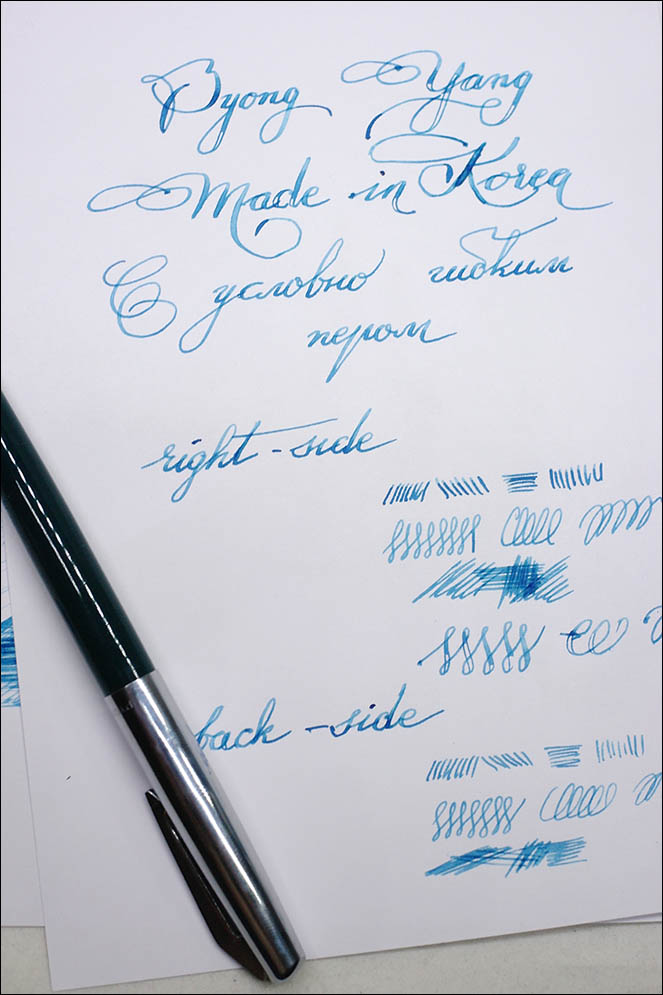 Pyong Yang
Made in Korea
С условно гибким
пером
right-side
back-side